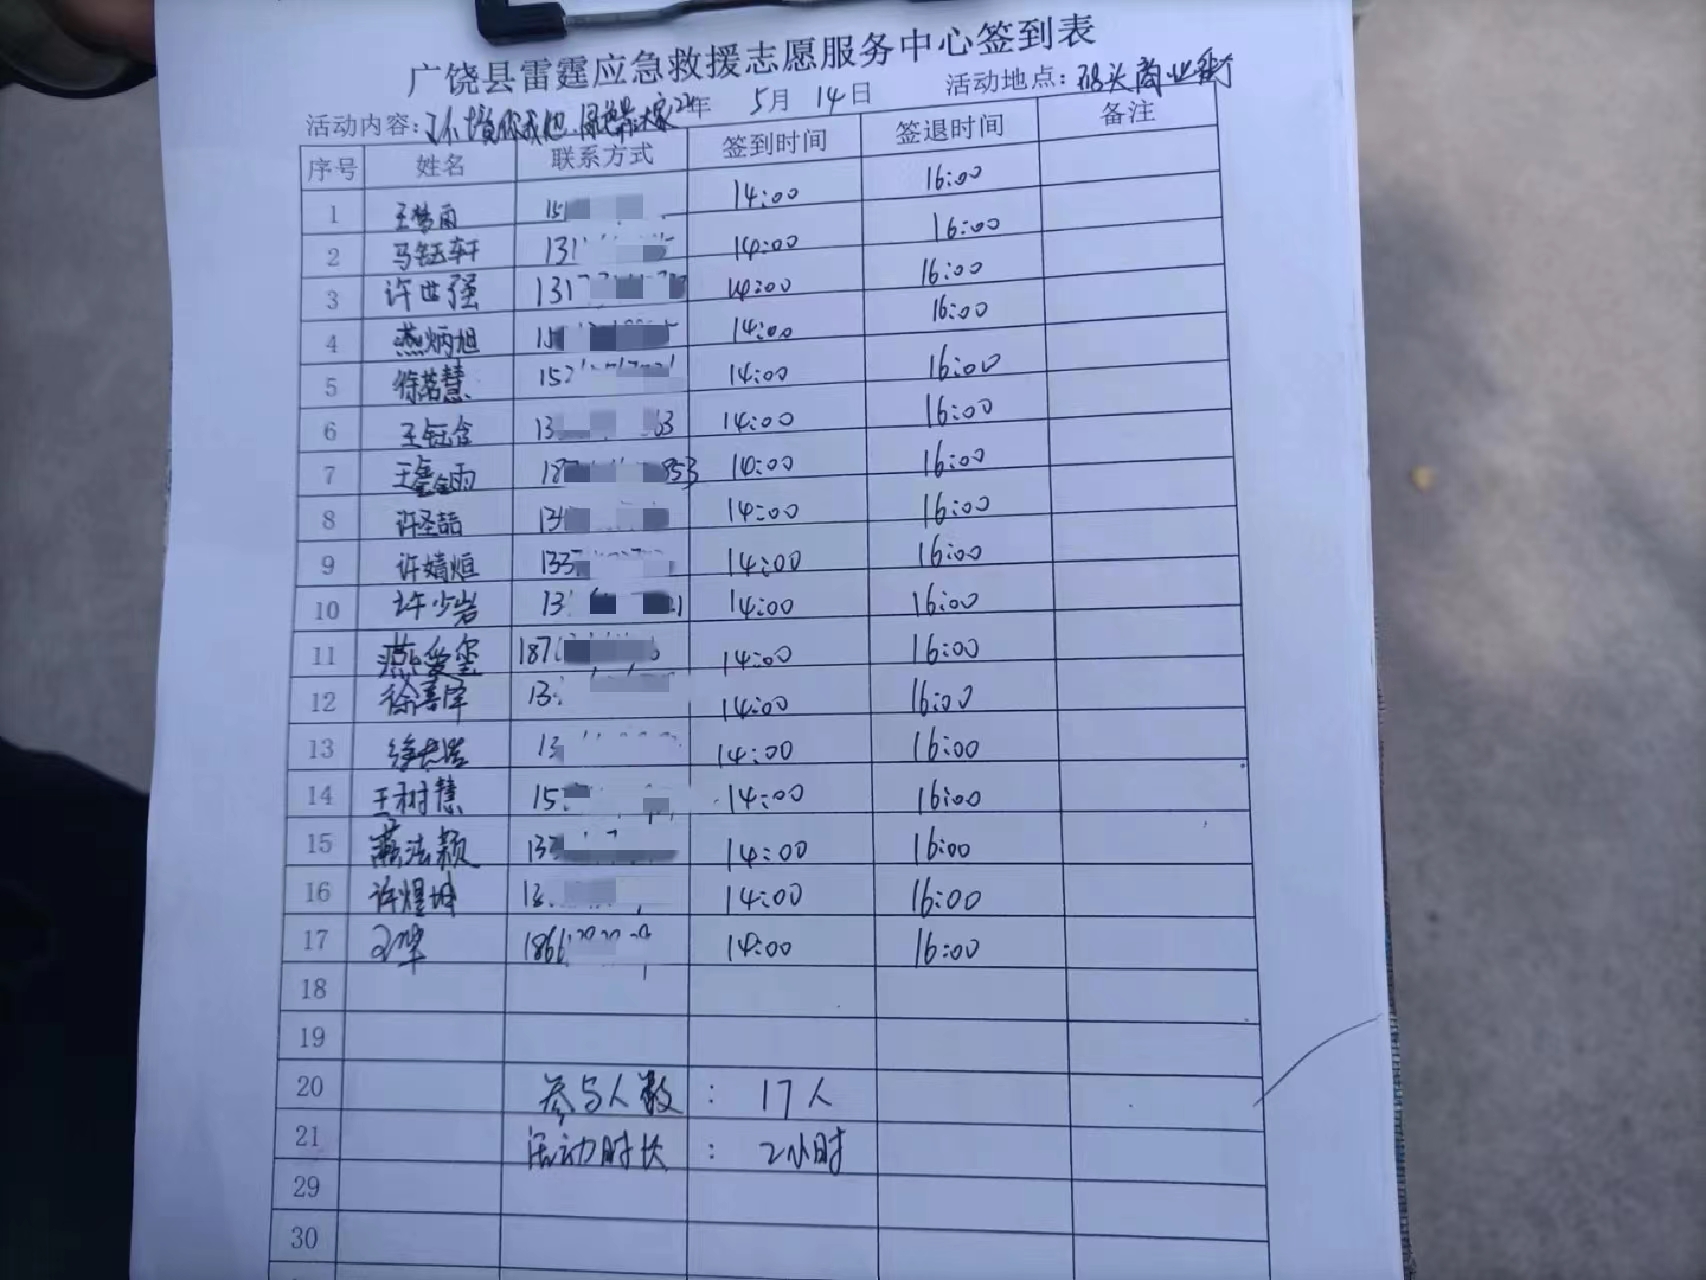 广饶县雷霆应急救援志愿服务中心签到表
活动内容: 22年 5月 14日 活动地点: 码头商业街
序号 姓名 联系方式 签到时间 签退时间 备注
1 王梦雨 15 14:00 16:00
2 马钰轩 131 14:00 16:00
3 许世强 1317 14:00 16:00
4 燕炳旭 15 14:00 16:00
5 徐茗慧 152 14:00 16:00
6 王钰含 13 63 14:00 16:00
7 王鑫雨 18 853 14:00 16:00
8 许圣喆 13 14:00 16:00
9 许婧烜 133 14:00 16:00
10 许少岩 13 1 14:00 16:00
11 燕爱玺 187 14:00 16:00
12 徐喜泽 13 14:00 16:00
13 13 14:00 16:00
14 王树慧 15 14:00 16:00
15 燕法颖 13 14:00 16:00
16 许煜坤 13 14:00 16:00
17 1866 14:00 16:00
18
19
20 参与人数 : 17人
21 活动时长 : 2小时
29
30